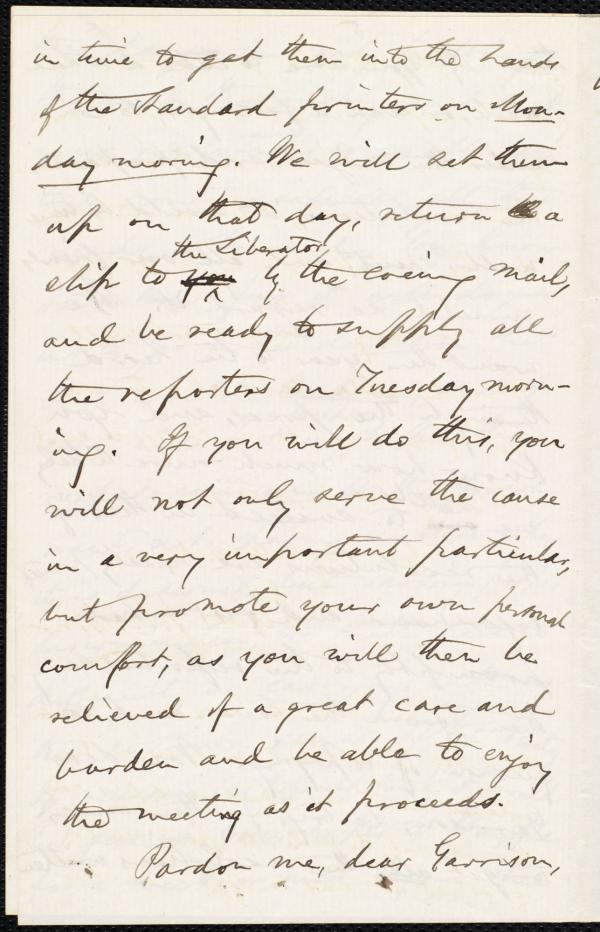 in time to get them into the hands
of the Standard printers on Mon-
day morning. We will set them
up on that day, return a
slip to you the Liberator by the evening mail,
and be ready to supply all
the reporters on Tuesday morn-
ing. If you will do this, you
will not only serve the cause
in a very important particular,
but promote your own personal
comfort, as you will then be
relieved of a great care and
burden and be able to enjoy
the meeting as it proceeds.
Pardon me, dear Garrison,